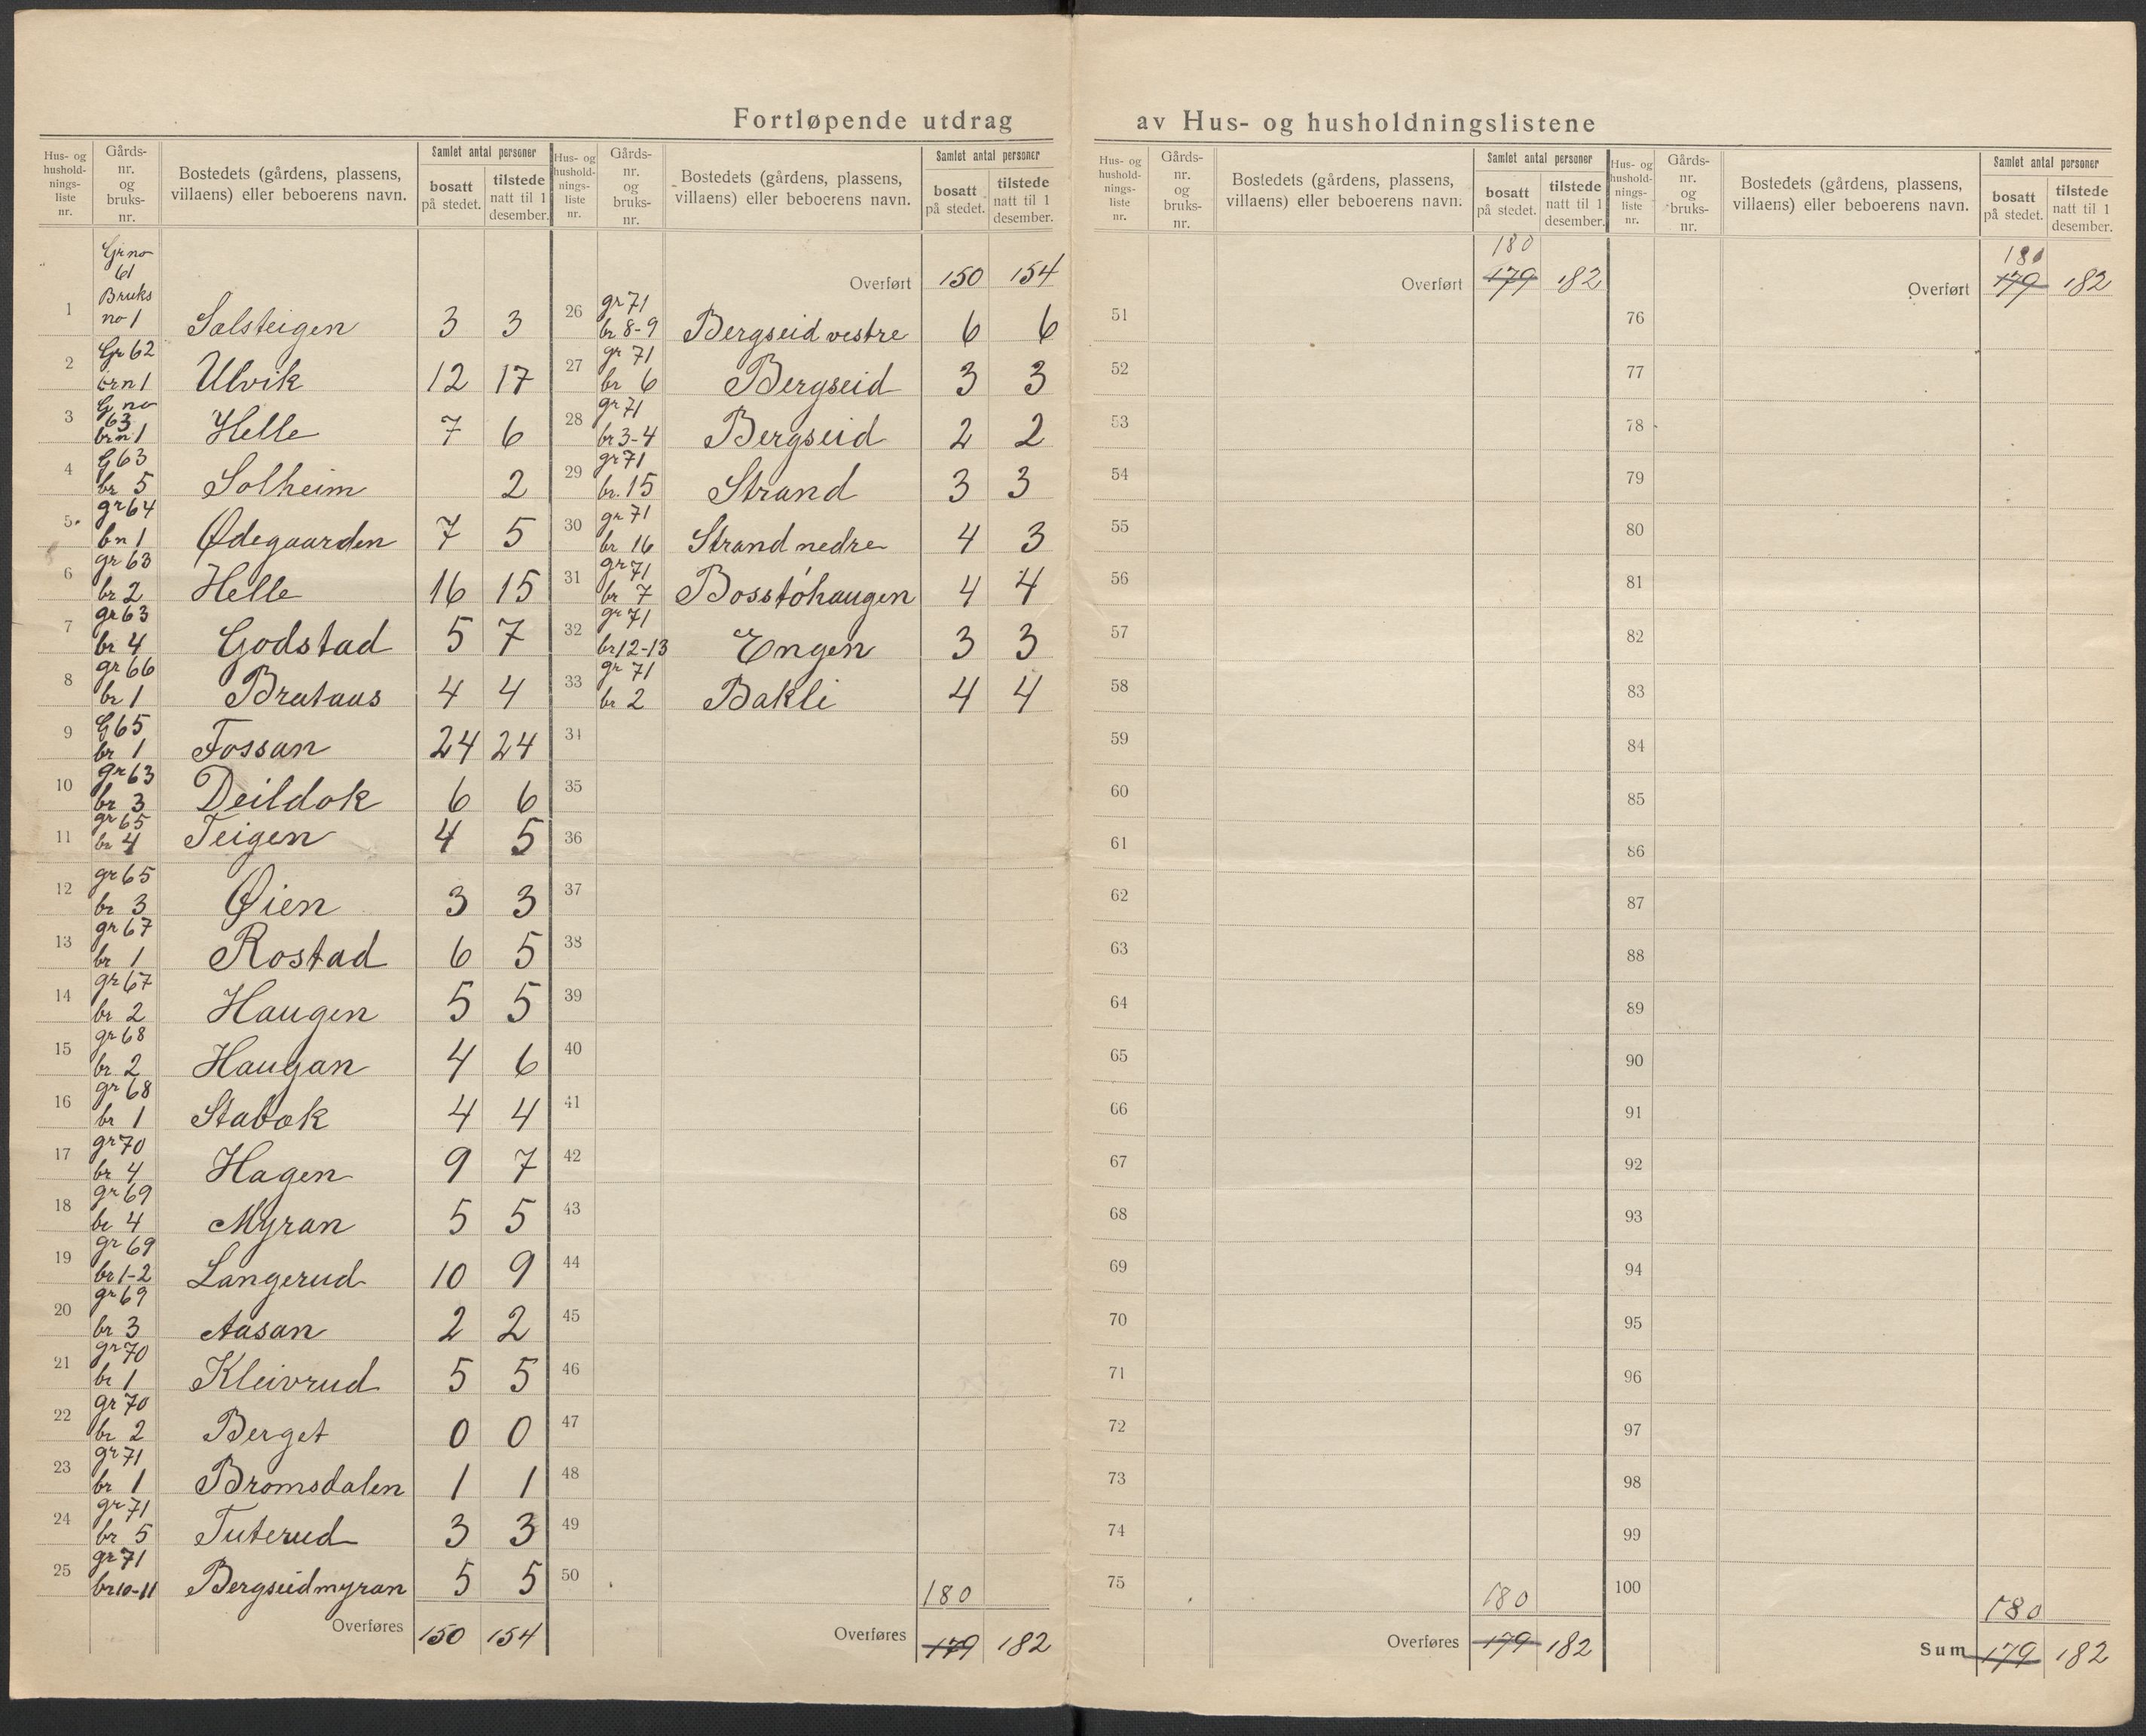 Fortløpende utdrag av Hus- og husholdningslistene
Hus- og hushold-nings-liste nr. | Gårds-nr. og bruks-nr. | Bostedets (gårdens, plassens, villaens) eller beboerens navn. | Samlet antal personer | bosatt på stedet. | tilstede natt til 1 desember.
1 Gr no 61 Bruks no 1 Solsteigen 3 3
2 Gr 62 brn 1 Ulvik 12 17
3 G no 63 brn 1 Helle 7 6
4 G 63 br 5 Solheim 2
5. gr 64 bn 1 Ødegaarden 7 5
6 gr 63 br 2 Helle 16 15
7 gr 63 br 4 Godstad 5 7
8 gr 66 br 1 Brataas 4 4
9 G 65 br 1 Fossan 24 24
10 gr 63 br 3 Deildok 6 6
11 gr 65 br 4 Teigen 4 5
12 gr 65 br 3 Øien 3 3
13 gr 67 br 1 Rostad 6 5
14 gr 67 br 2 Haugen 5 5
15 gr 68 br 2 Haugan 4 6
16 gr 68 br 1 Stabok 4 4
17 gr 70 br 4 Hagen 9 7
18 gr 69 br 4 Myran 5 5
19 gr 69 br 1-2 Langerud 10 9
20 gr 69 br 3 Aasan 2 2
21 gr 70 br 1 Kleivrud 5 5
22 gr 70 br 2 Berget 0 0
23 gr 71 br 1 Bromsdalen 1 1
24 gr 71 br 5 Tuterud 3 3
25 gr 71 br 10-11 Bergseidmyran 5 5
Overføres 150 154
Hus- og hushold-nings-liste nr. | Gårds-nr. og bruks-nr. | Bostedets (gårdens, plassens, villaens) eller beboerens navn. | Samlet antal personer | bosatt på stedet. | tilstede natt til 1 desember.
Overført 150 154
26 gr 71 br 8-9 Bergseid vestre 6 6
27 gr 71 br 6 Bergseid 3 3
28 gr 71 br 3-4 Bergseid 2 2
29 gr 71 br. 15 Strand 3 3
30 gr 71 br 16 Strand nedre 4 3
31 gr 71 br 7 Bosstóhaugen 4 4
32 gr 71 br 12-13 Engen 3 3
33 gr 71 br 2 Bakli 4 4
34
35
36
37
38
39
40
41
42
43
44
45
46
47
48
49
50
180
Overføres 179 182
Hus- og hushold-nings-liste nr. | Gårds-nr. og bruks-nr. | Bostedets (gårdens, plassens, villaens) eller beboerens navn. | Samlet antal personer | bosatt på stedet. | tilstede natt til 1 desember.
180
Overført 179 182
51
52
53
54
55
56
57
58
59
60
61
62
63
64
65
66
67
68
69
70
71
72
73
74
75
180
Overføres 179 182
Hus- og hushold-nings-liste nr. | Gårds-nr. og bruks-nr. | Bostedets (gårdens, plassens, villaens) eller beboerens navn. | Samlet antal personer | bosatt på stedet. | tilstede natt til 1 desember.
180
Overført 179 182
76
77
78
79
80
81
82
83
84
85
86
87
88
89
90
91
92
93
94
95
96
97
98
99
100
180
Sum 179 182